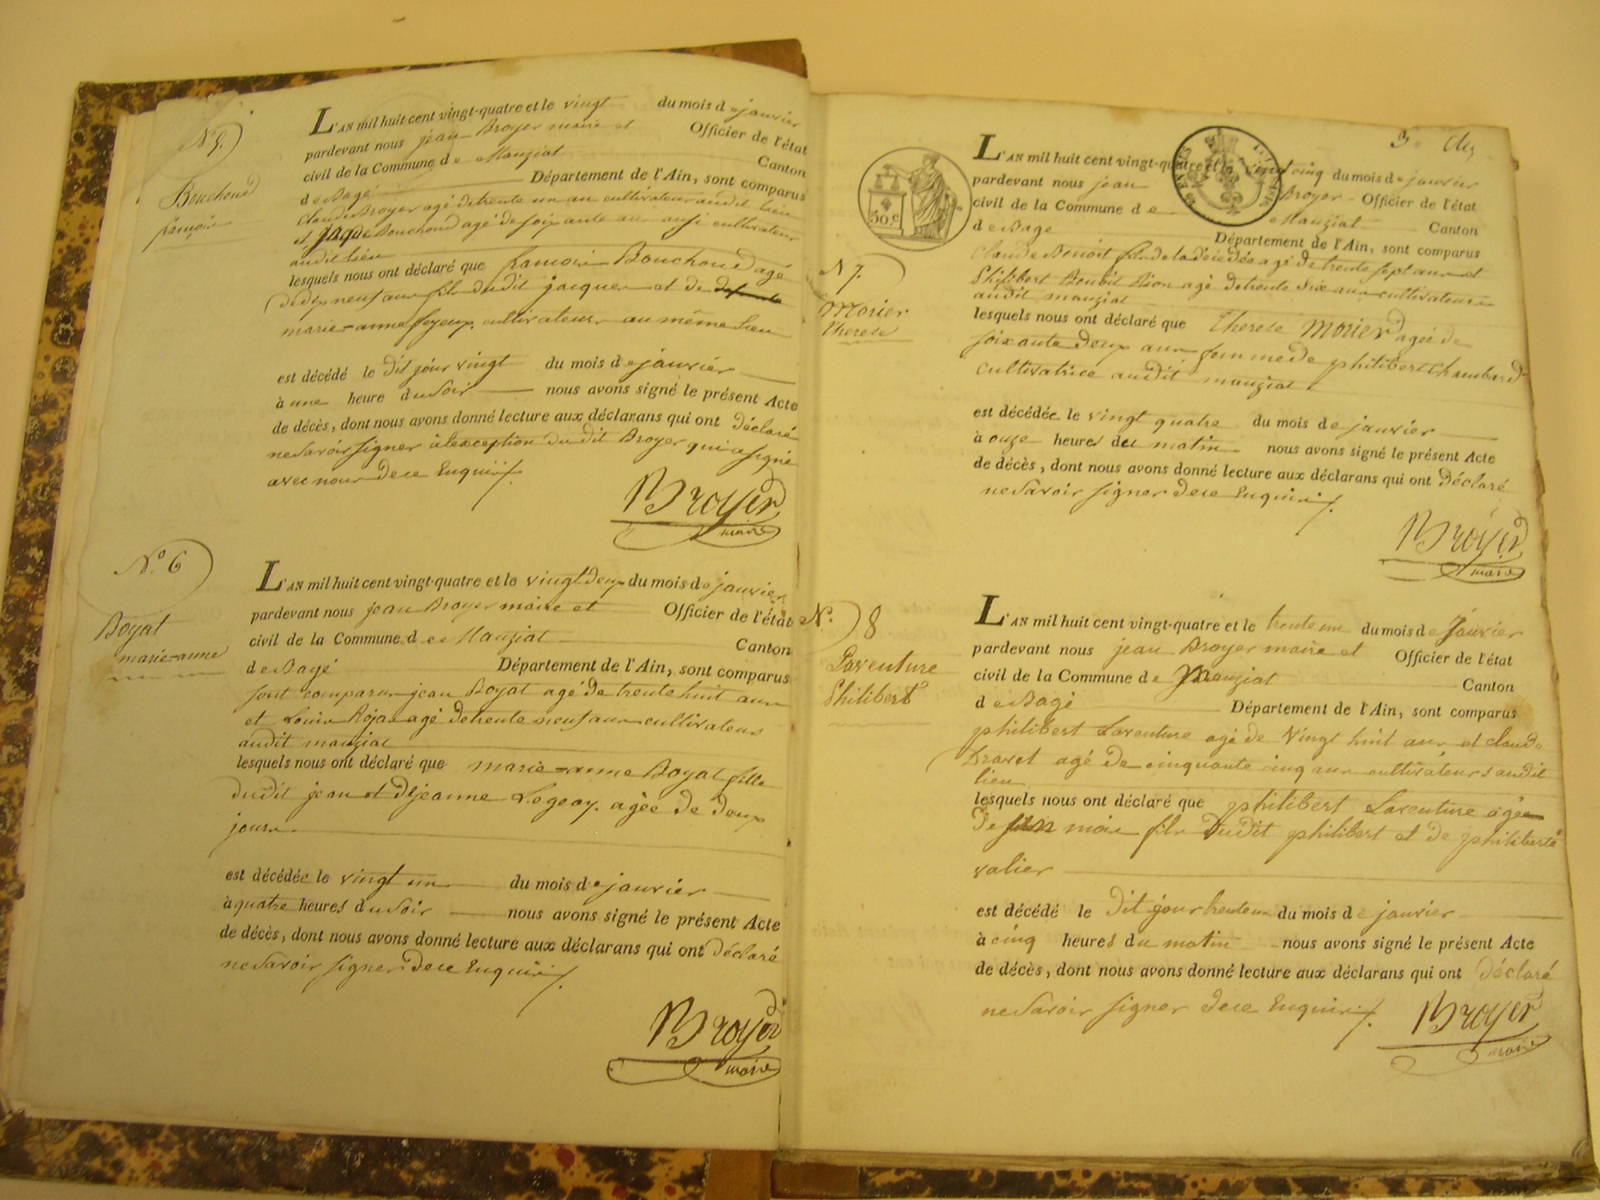 N 5.
Bouchoud
françois
L'AN mil huit cent vingt-quatre et le vingt du mois de janvier
pardevant nous jean Broyer maire et Officier de l'état
civil de la Commune de Manziat Canton
de Bagé Département de l'Ain, sont comparus
claude Broyer agé de trente un an cultivateur audit lieu
et jaque Bouchoud agé de soixante ans aussi cultivateur
audit lieu
lesquels nous ont déclaré que francois Bouchoud agé
de dix neuf ans fils dudit jacques et de
marie=anne cultivateurs au même lieu
est décédé le dit jour vingt du mois de janvier
à une heure du soir nous avons signé le présent Acte
de décès, dont nous avons donné lecture aux déclarans qui ont déclaré
ne savoir signer à l'exception dudit Broyer qui a signé
avec nous de ce Enquis /.
Broyer
maire
N.° 6
Boyat
marie=anne
L'AN mil huit cent vingt-quatre et le vingt deux du mois de janvier
pardevant nous jean Broyer maire et Officier de l'état
civil de la Commune de Manziat Canton
de Bagé Département de l'Ain, sont comparus
sont comparus jean Boyat agé de trente huit ans
et Louis agé de trente neuf ans cultivateurs
audit manziat
lesquels nous ont déclaré que marie=anne Boyat fille
dudit jean et de jeanne agée de deux
jours
est décédée le vingt un du mois de janvier
à quatre heures du soir nous avons signé le présent Acte
de décès, dont nous avons donné lecture aux déclarans qui ont déclaré
ne savoir signer de ce Enquis /.
Broyer
maire
3
50.c
N 7.
Morier
Therese
L'AN mil huit cent vingt-quatre et le vingt cinq du mois de janvier
pardevant nous jean Broyer Officier de l'état
civil de la Commune de Manziat Canton
de Bage Département de l'Ain, sont comparus
claude Benoit agé de trente sept ans et
Philibert Benoit agé de trente six ans cultivateurs
audit manziat
lesquels nous ont déclaré que Therese Morier agée de
soixante deux ans femme de philibert Chambard
cultivatrice audit manziat
est décédée le vingt quatre du mois de janvier
à onze heures du matin nous avons signé le présent Acte
de décès, dont nous avons donné lecture aux déclarans qui ont déclaré
ne savoir signer de ce Enquis /.
Broyer
maire
N.° 8
Laventure
Philibert
L'AN mil huit cent vingt-quatre et le trente un du mois de Janvier
pardevant nous jean Broyer maire et Officier de l'état
civil de la Commune de Manziat Canton
de Bagé Département de l'Ain, sont comparus
philibert Laventure agé de vingt huit ans et claude
Dravet agé de cinquante cinq ans cultivateurs audit
lieu
lesquels nous ont déclaré que philibert Laventure agé
de un mois fils dudit philibert et de philiberte
valier
est décédé le dit jour trente un du mois de janvier
à cinq heures du matin nous avons signé le présent Acte
de décès, dont nous avons donné lecture aux déclarans qui ont déclaré
ne savoir signer de ce Enquis /.
Broyer
maire